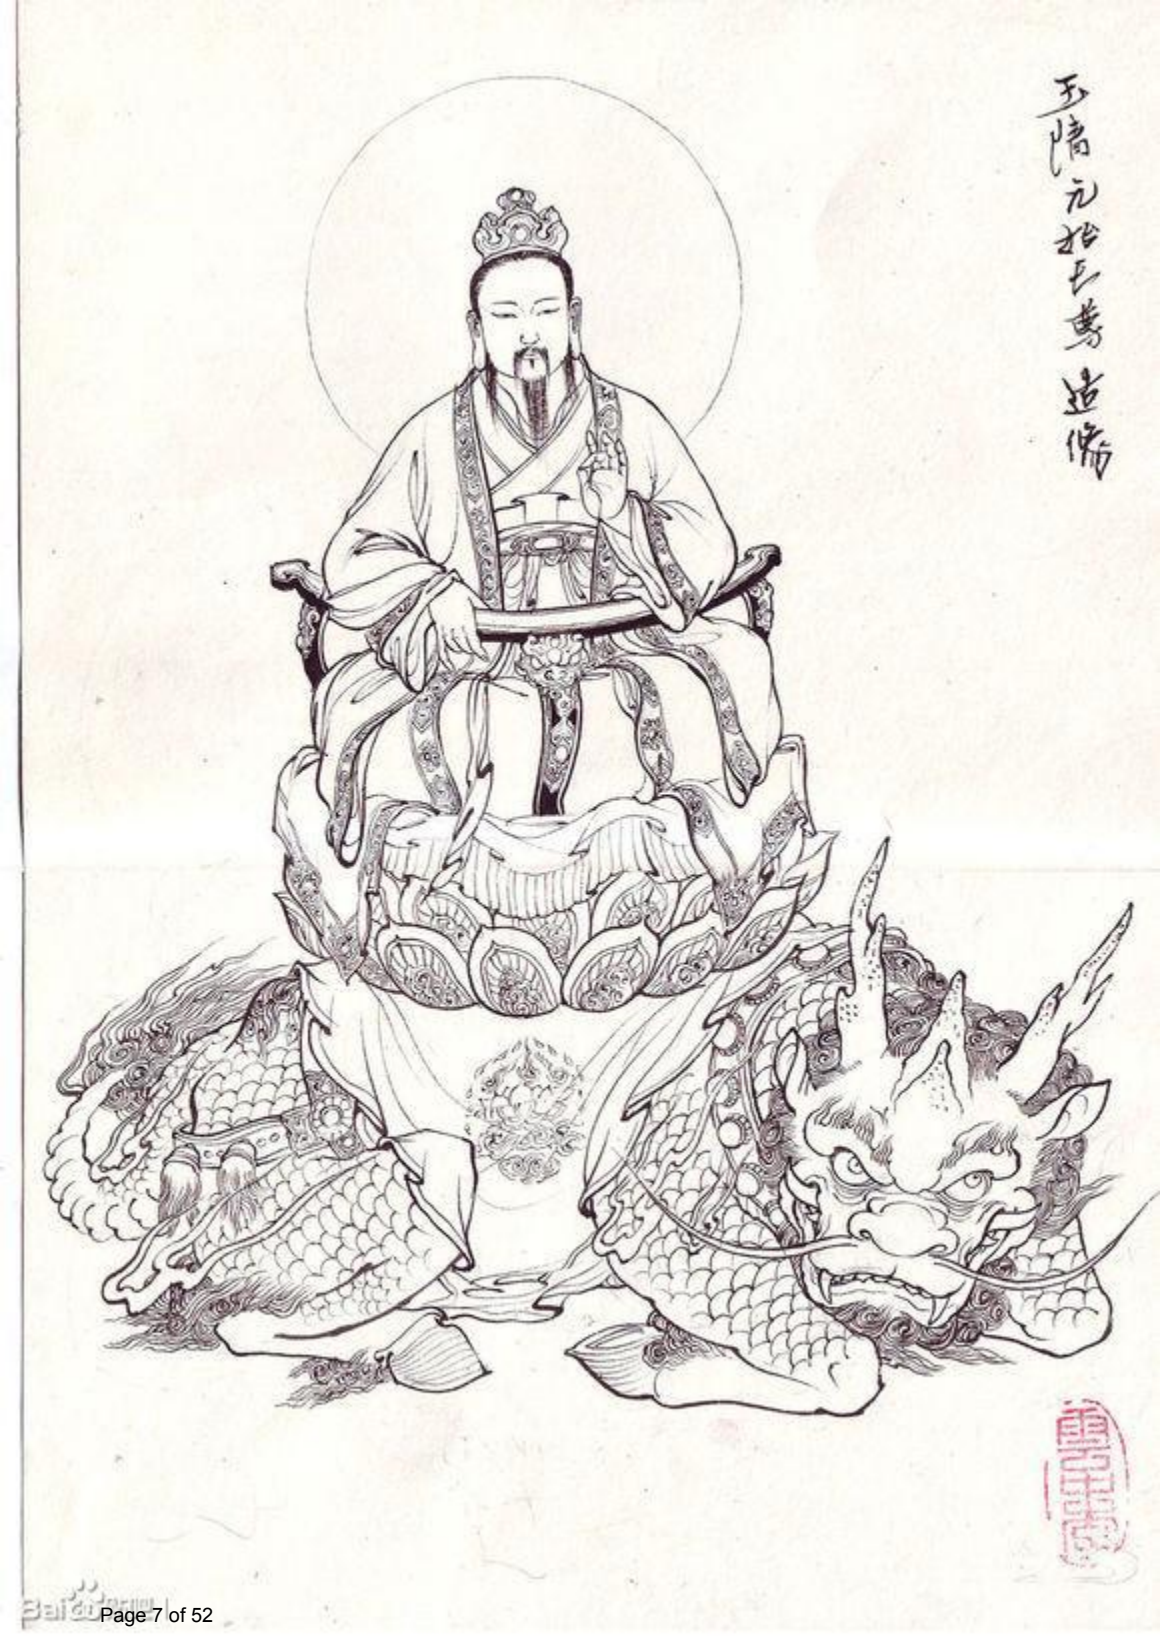 玉隋元始天尊造像
Baidu贴吧
Page 7 of 52